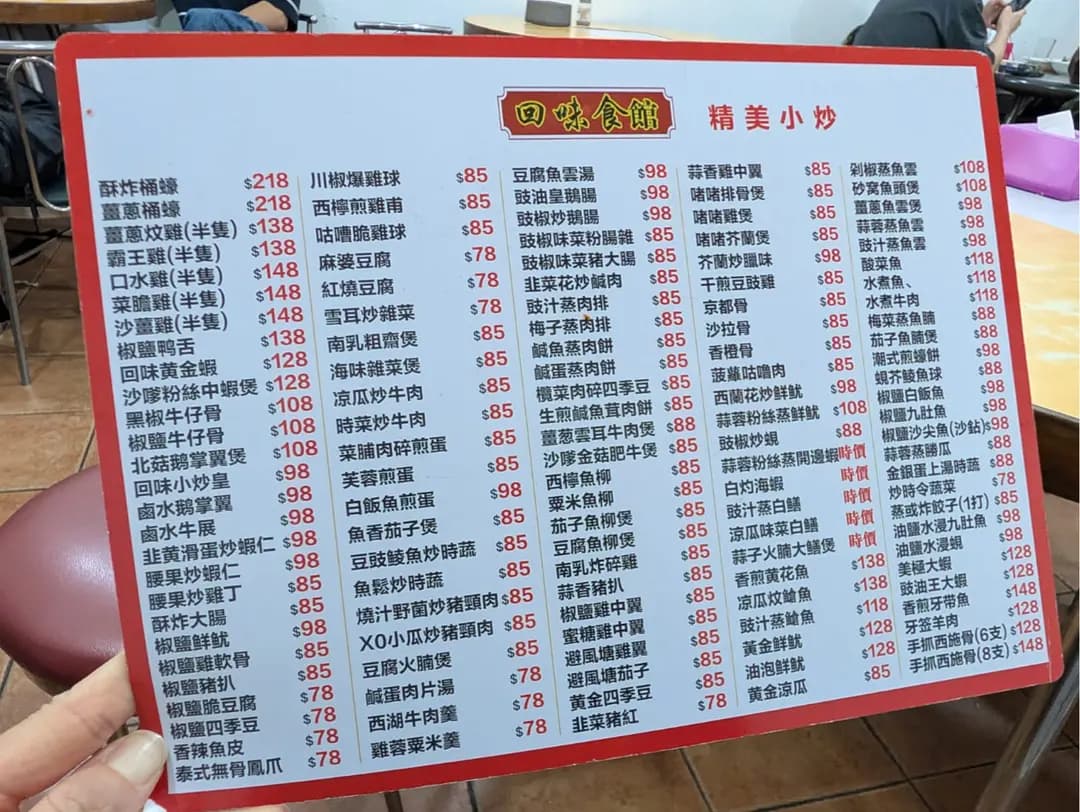 回味食館 精美小炒
酥炸桶蠔 $218
薑蔥桶蠔 $218
薑蔥炆雞(半隻) $138
霸王雞(半隻) $138
口水雞(半隻) $148
菜膽雞(半隻) $148
沙薑雞(半隻) $148
椒鹽鴨舌 $138
回味黃金蝦 $128
沙嗲粉絲中蝦煲 $128
黑椒牛仔骨 $108
椒鹽牛仔骨 $108
北菇鵝掌翼煲 $108
回味小炒皇 $98
鹵水鵝掌翼 $98
鹵水牛展 $98
韭黃滑蛋炒蝦仁 $98
腰果炒蝦仁 $98
腰果炒雞丁 $85
酥炸大腸 $85
椒鹽鮮魷 $98
椒鹽雞軟骨 $85
椒鹽豬扒 $85
椒鹽脆豆腐 $78
椒鹽四季豆 $78
香辣魚皮 $78
泰式無骨鳳爪 $78
川椒爆雞球 $85
西檸煎雞甫 $85
咕嘈脆雞球 $85
麻婆豆腐 $78
紅燒豆腐 $78
雪耳炒雜菜 $78
南乳粗齋煲 $85
海味雜菜煲 $85
凉瓜炒牛肉 $85
時菜炒牛肉 $85
菜脯肉碎煎蛋 $85
芙蓉煎蛋 $85
白飯魚煎蛋 $98
魚香茄子煲 $85
豆豉鯪魚炒時蔬 $85
魚鬆炒時蔬 $85
燒汁野菌炒豬頸肉 $85
XO小瓜炒豬頸肉 $85
豆腐火腩煲 $85
鹹蛋肉片湯 $78
西湖牛肉羹 $78
雞蓉粟米羹 $78
豆腐魚雲湯 $98
豉油皇鵝腸 $98
豉椒炒鵝腸 $98
豉椒味菜粉腸雜 $85
豉椒味菜豬大腸 $85
韭菜花炒鹹肉 $85
豉汁蒸肉排 $85
梅子蒸肉排 $85
鹹魚蒸肉餅 $85
鹹蛋蒸肉餅 $85
欖菜肉碎四季豆 $85
生煎鹹魚茸肉餅 $85
薑葱雲耳牛肉煲 $88
沙嗲金菇肥牛煲 $85
西檸魚柳 $85
粟米魚柳 $85
茄子魚柳煲 $85
豆腐魚柳煲 $85
南乳炸碎雞 $85
蒜香豬扒 $85
椒鹽雞中翼 $85
蜜糖雞中翼 $85
避風塘雞翼 $85
避風塘茄子 $85
黃金四季豆 $85
韭菜豬紅 $78
蒜香雞中翼 $85
啫啫排骨煲 $85
啫啫雞煲 $85
啫啫芥蘭煲 $85
芥蘭炒臘味 $98
干煎豆豉雞 $85
京都骨 $85
沙拉骨 $85
香橙骨 $85
菠蘿咕嚕肉 $85
西蘭花炒鮮魷 $98
蒜蓉粉絲蒸鮮魷 $108
豉椒炒蜆 $88
蒜蓉粉絲蒸開邊蝦 時價
白灼海蝦 時價
豉汁蒸白鱔 時價
凉瓜味菜白鱔 時價
蒜子火腩大鱔煲 時價
香煎黃花魚 $138
凉瓜炆鱠魚 $138
豉汁蒸鱠魚 $118
黃金鮮魷 $128
油泡鮮魷 $128
黃金凉瓜 $85
剁椒蒸魚雲 $108
砂窩魚頭煲 $108
薑蔥魚雲煲 $98
蒜蓉蒸魚雲 $98
豉汁蒸魚雲 $98
酸菜魚 $118
水煮魚、 $118
水煮牛肉 $118
梅菜蒸魚腩 $88
茄子魚腩煲 $88
潮式煎蠔餅 $98
蜆芥鯪魚球 $88
椒鹽白飯魚 $98
椒鹽九肚魚 $98
椒鹽沙尖魚(沙鉆) $98
蒜蓉蒸勝瓜 $88
金銀蛋上湯時蔬 $88
炒時令蔬菜 $78
蒸或炸餃子(1打) $85
油鹽水浸九肚魚 $98
油鹽水浸蜆 $98
美極大蝦 $128
豉油王大蝦 $128
香煎牙帶魚 $148
牙簽羊肉 $128
手抓西施骨(6支) $128
手抓西施骨(8支) $148